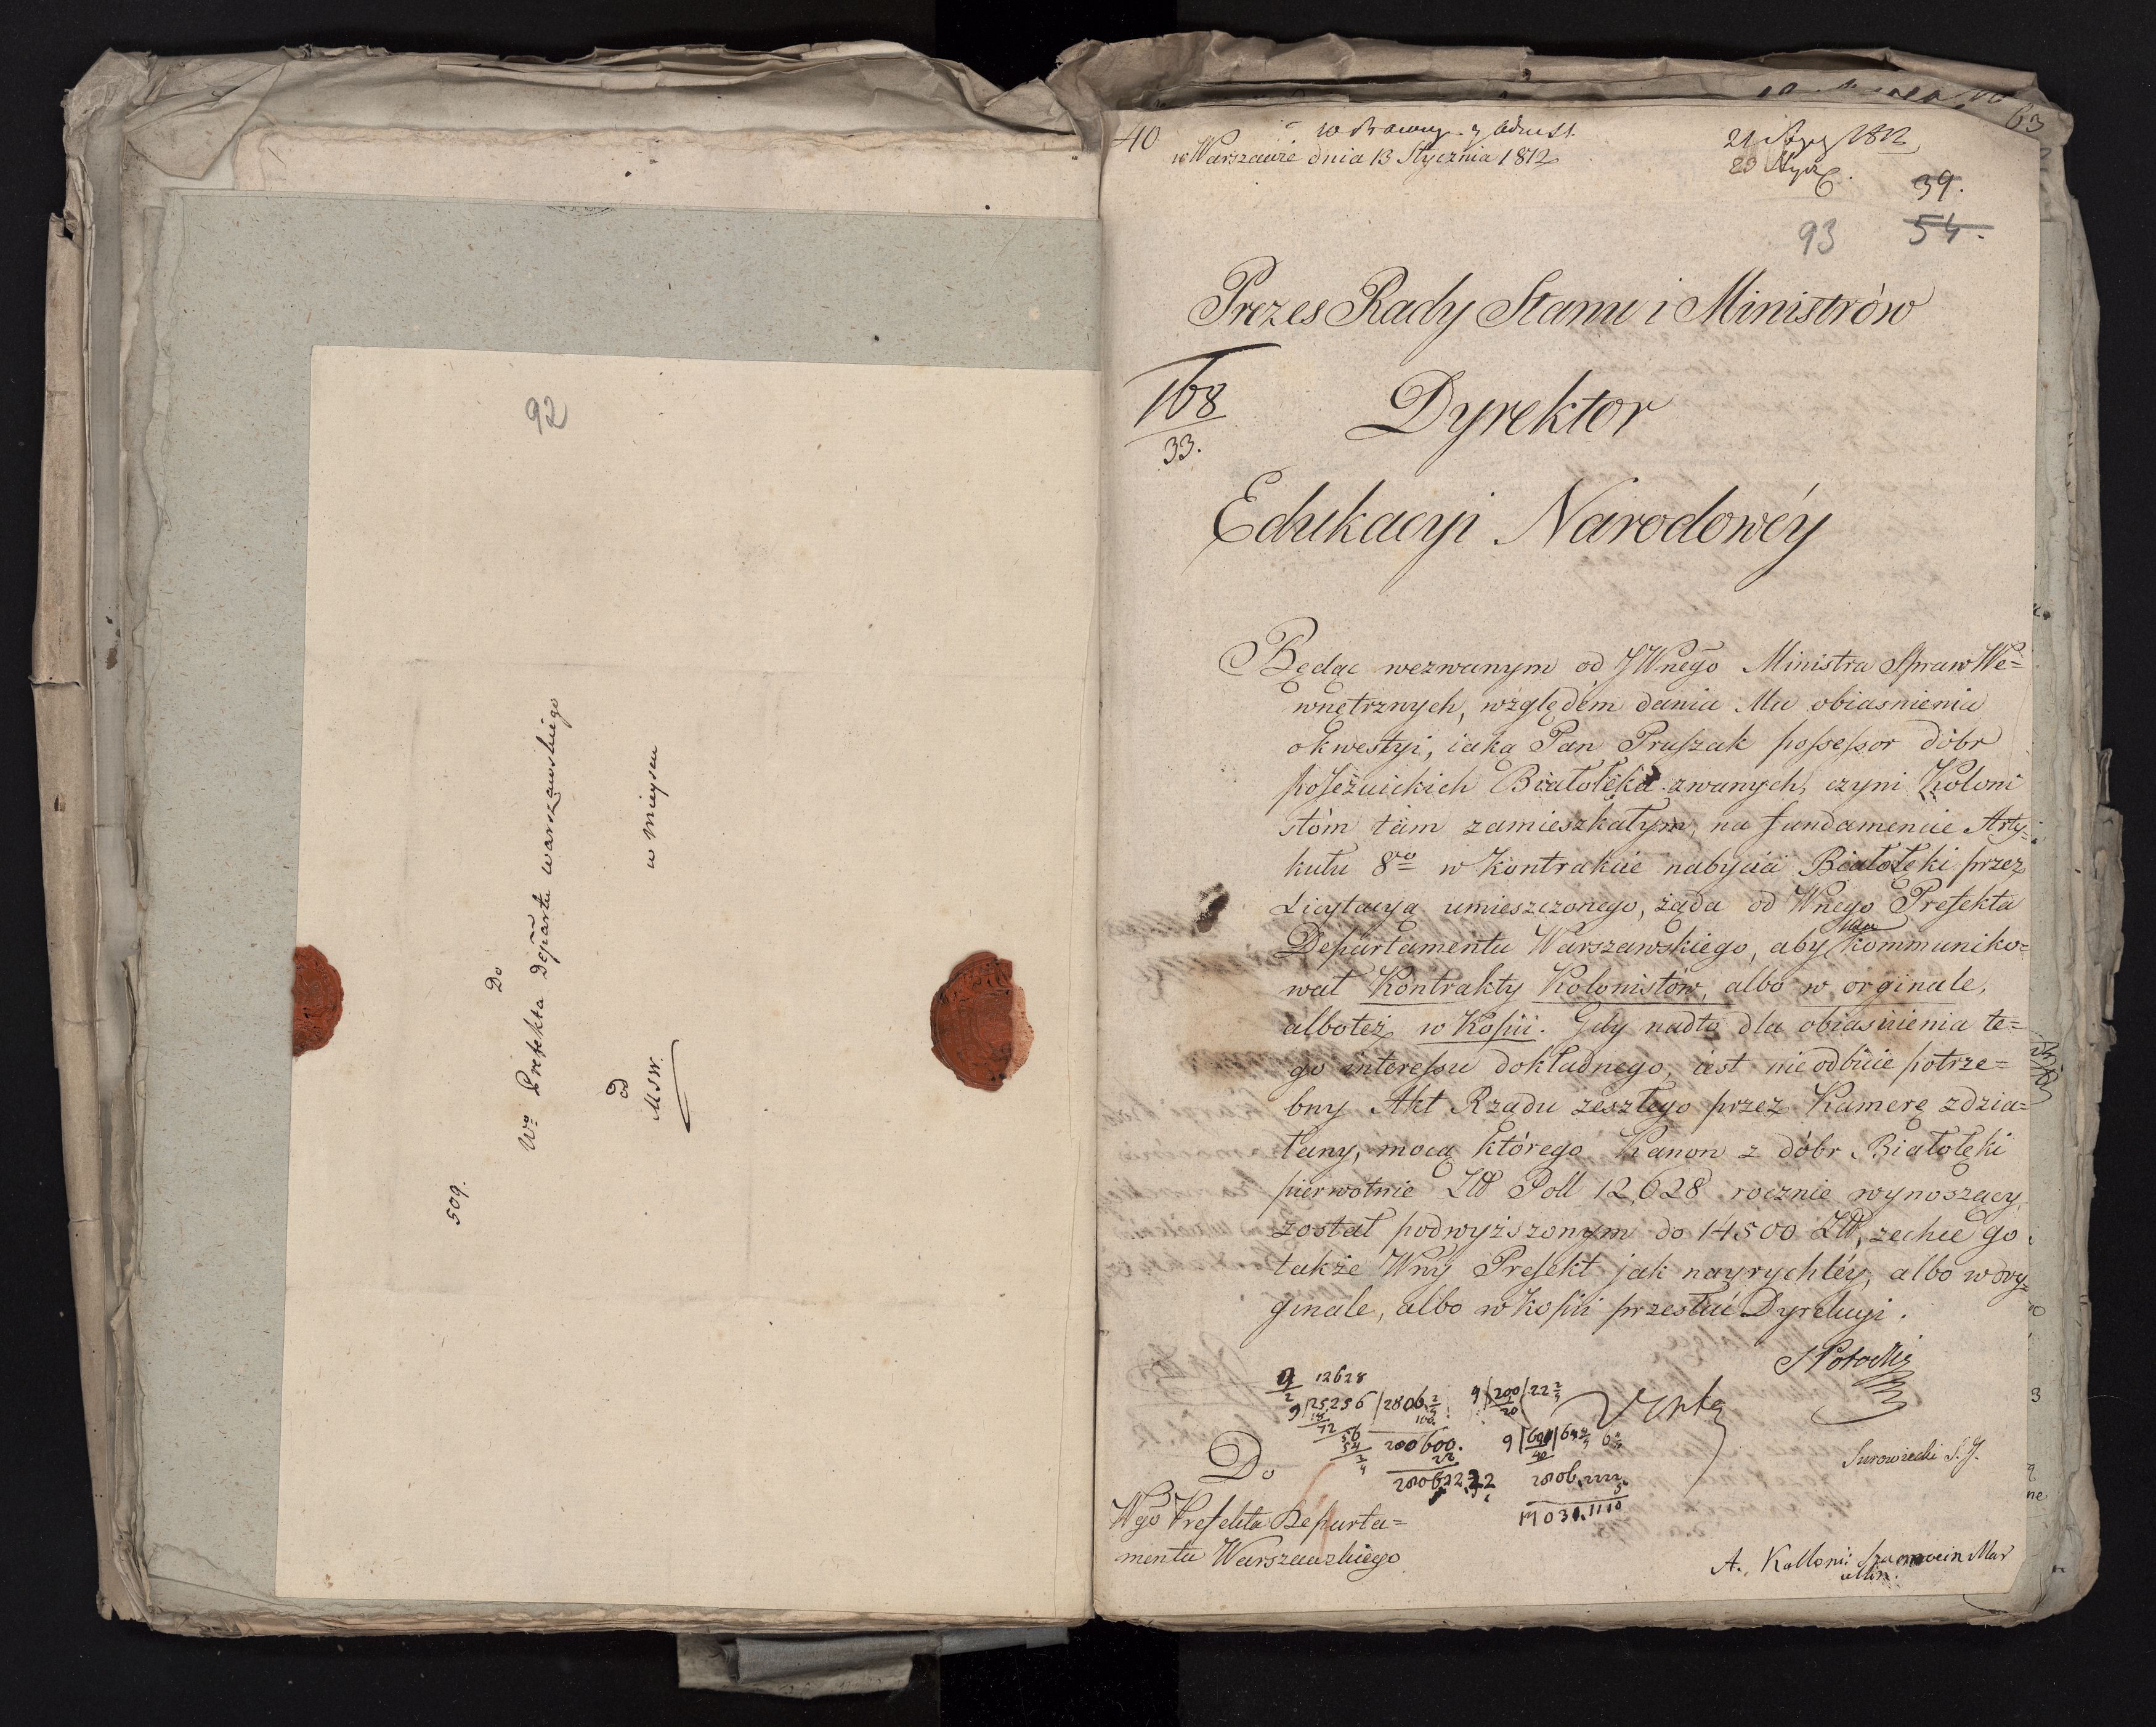 92
509.
Do
Wo Prefekta Departu warszawskiego
od
MSW.
w mieyscu
40
w Warszawie dnia 13 Stycznia 1812
21 Stycz 1812
23 Stycz
63
39.
93
54.
Prezes Rady Stanu i Ministrów
168
33.
Dyrektor
Edukacyi Narodowéy
Będąc wezwanym od JWnego Ministra Spraw We=
wnętrznych, względem dania Mu obiasnienia
o kwestyi, iaką Pan Pruszak possessor dóbr
pojezuickich Białołęka zwanych, czyni Koloni
stóm tam zamieszkałym, na fundamencie Arty=
kułu 8vo w Kontrakcie nabycia Białołęki przez
Licytacyą umieszczonego, żąda od Wnego Prefekta
Departamentu Warszawskiego, aby kommuniko=
wał Kontrakty Kolonistów, albo w orginale,
albo też w Kopii. Gdy nadto dla obiasnienia te=
go interessu dokładnego, iest nieodbicie potrze=
bny Akt Rządu zeszłego przez Kamerę zdzia=
łany, mocą którego Kanon z dóbr Białołęki
pierwotnie Złł Poll 12,628 rocznie wynoszący
został podwyższonym do 14500 Złł, zechce go
także Wny Prefekt jak nayrychléy, albo w ory=
ginale, albo w kopii przesłać Dyrekcyi.
S Potocki
Verte
12628
2
9/25256/2806
200600.
Surowiecki S. J.
Do
Wgo Prefekta Departa=
mentu Warszawskiego
A. Kollonii